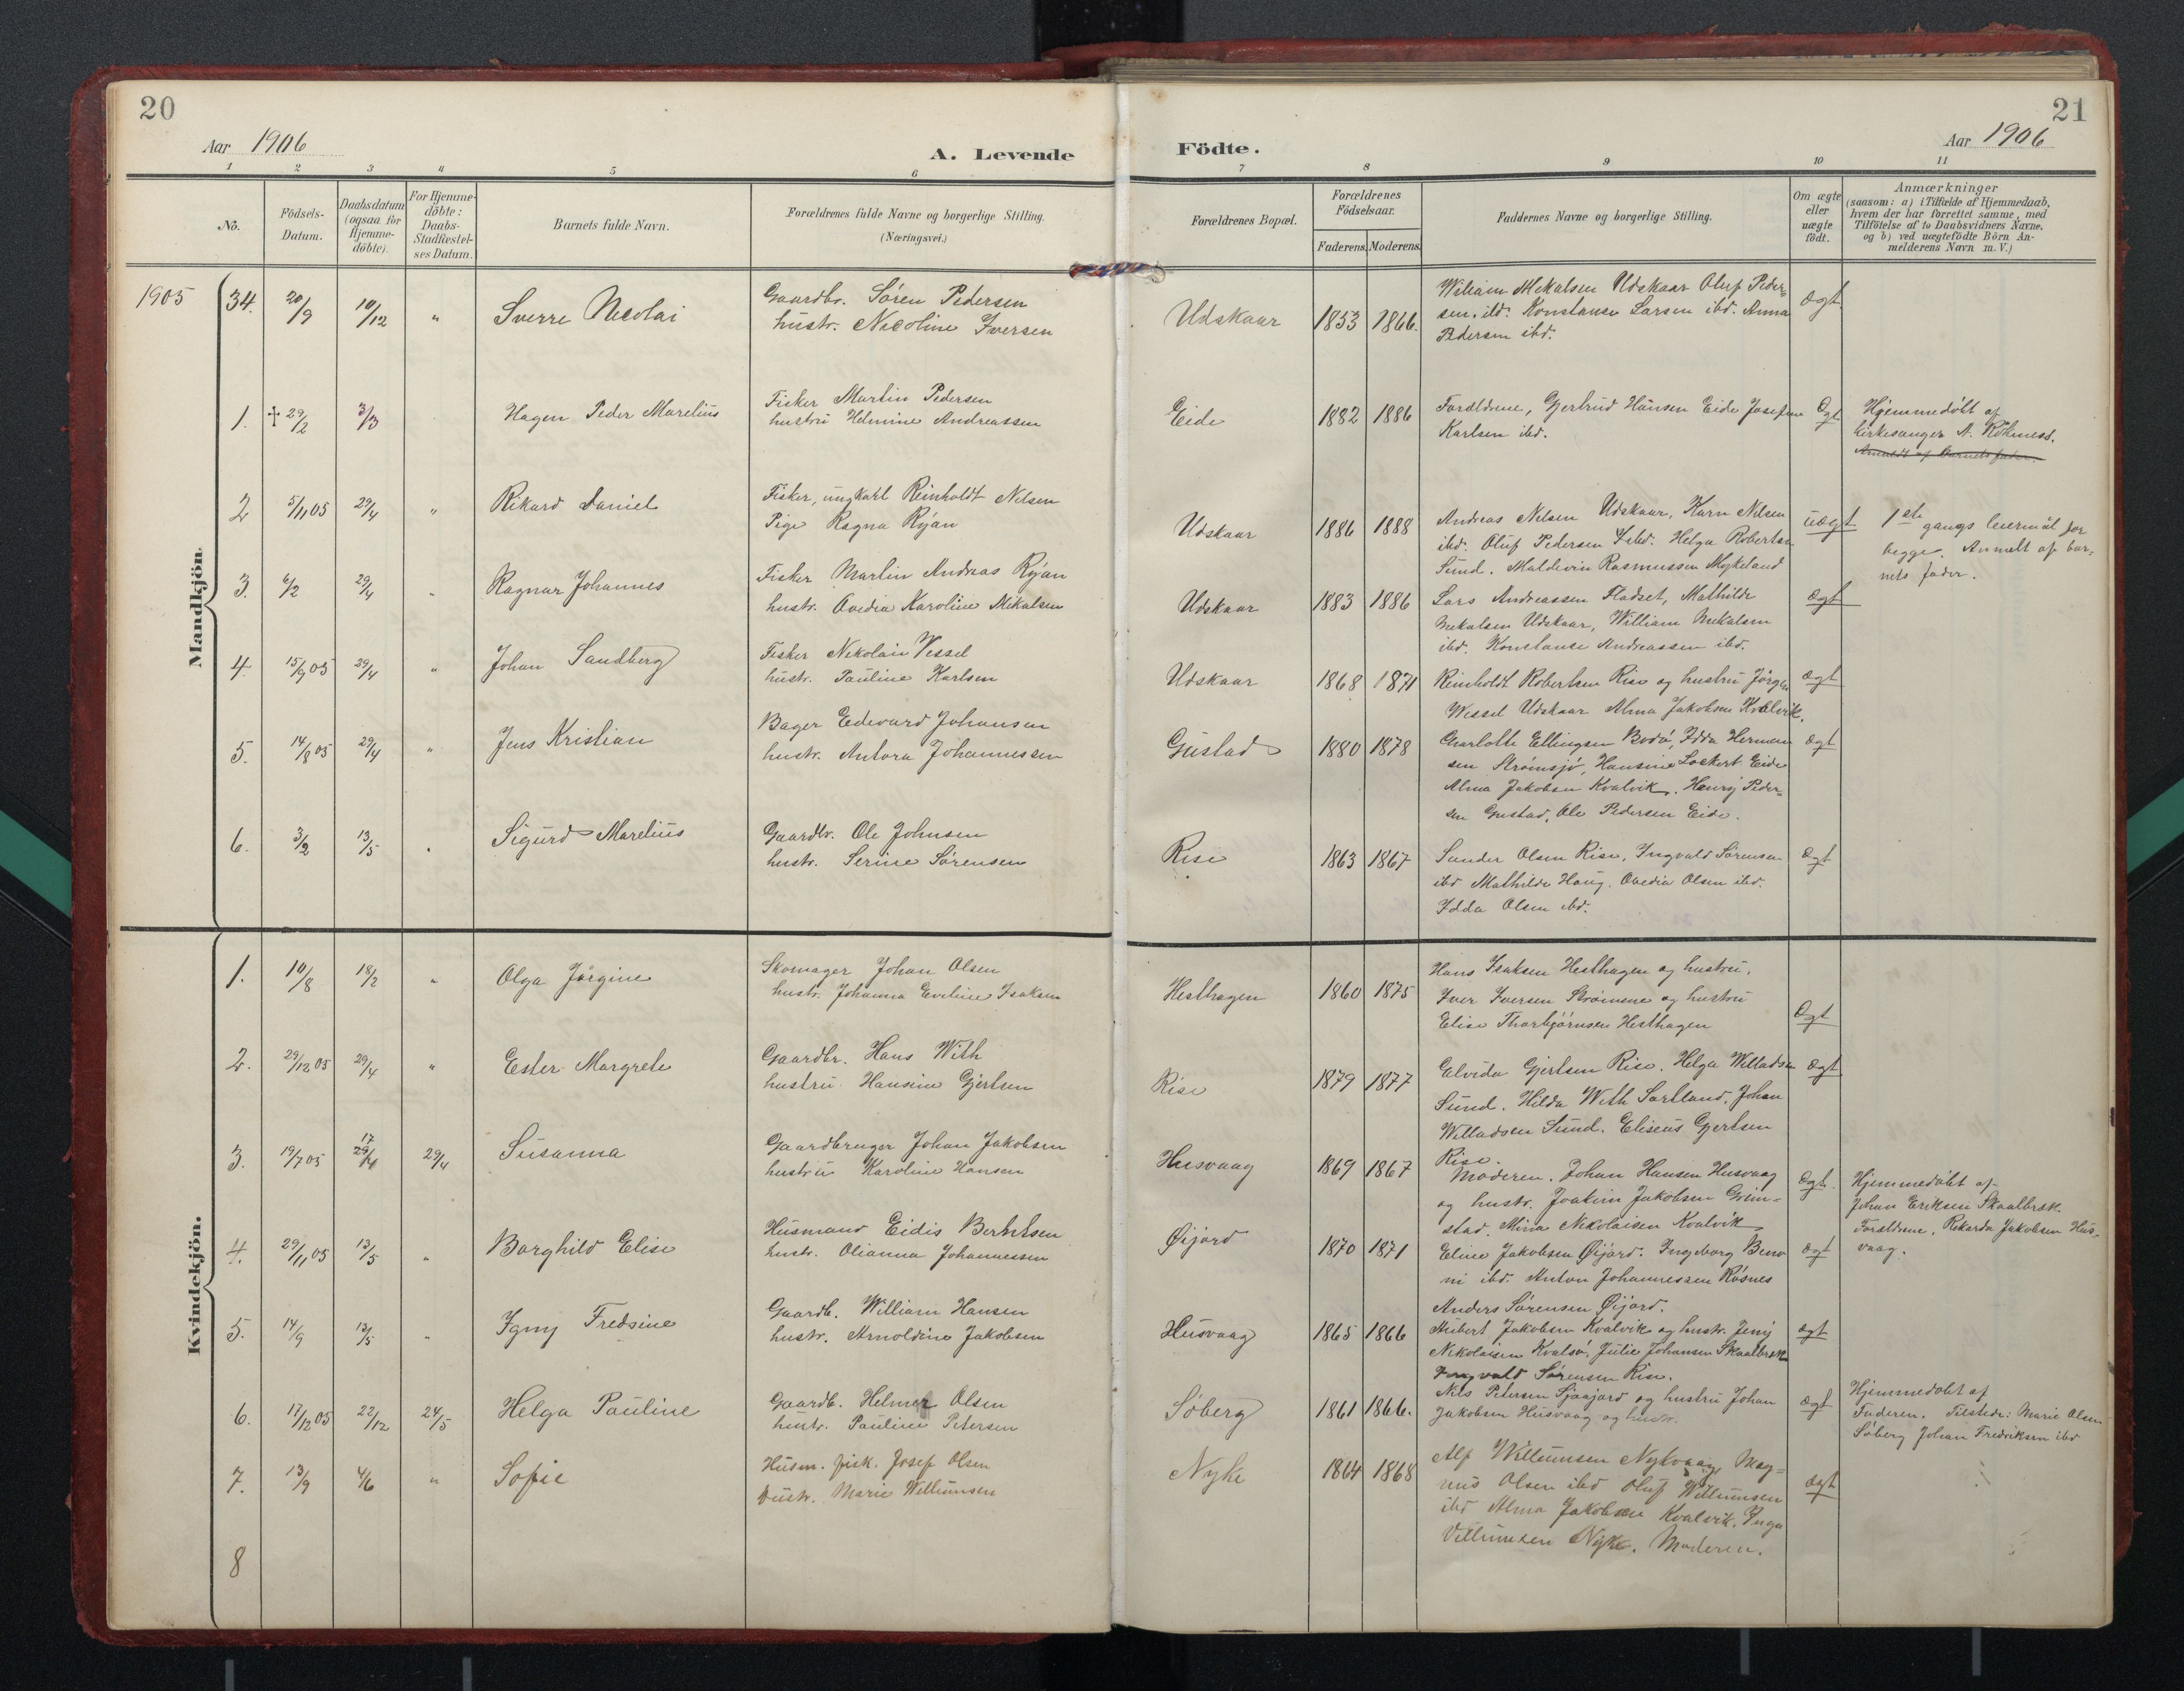 20
Aar 1906
A. Levende
1 2 3 4 5 6
No.
Födsels-
Datum.
Daabsdatum
(ogsaa for
Hjemme-
döbte).
For Hjemme-
döbte:
Daabs-
Stadfæstel-
ses Datum.
Barnets fulde Navn.
Forældrenes fulde Navne og borgerlige Stilling.
(Næringsvei.)
Mandkjön.
1905 34. 20/9 10/12 " Sverre Nicolai
Gaardbr. Søren Pedersen
hustr. Nicoline Iversen
1. † 29/2 3/3 Hagen Peder Marelius
Fisker Martin Pedersen
hustru Helmine Andreassen
2 5/11 05 29/4 " Rikard Daniel
Fisker, ungkarl Reinholdt Nilsen
Pige Ragna Ryan
3. 6/2 29/4 " Ragnar Johannes
Fisker Martin Andreas Ryan
hustr. Ovedia Karoline Mikalsen
4. 15/9 05 29/4 " Johan Sandberg
Fisker Nikolai Vessel
hustr. Pauline Karlsen
5. 14/8 05 29/4 " Jens Kristian
Bager Edevard Johansen
hustr. Antora Johannessen
6. 3/2 13/5 " Sigurd Marelius
Gaardbr. Ole Johnsen
hustr. Serine Sørensen
Kvindekjön.
1. 10/8 18/2 " Olga Jørgine
Skomager Johan Olsen
hustr. Johanna Eveline Isaksen
2. 29/12 05 29/4 " Ester Margrete
Gaardbr. Hans With
hustru Hansine Gjertsen
3. 19/7 05 29/4 Susanna
Gaardbruger Johan Jakobsen
hustru Karoline Hansen
4. 29/11 05 13/5 " Borghild Elise
Husmand Eidis Berntsen
hustr. Olianna Johannessen
5. 14/9 13/5 " Igny Fredsine
Gaardb. William Hansen
hustr. Arnoldine Jakobsen
6. 17/12 05 22/12 24/5 Helga Pauline
Gaardb. Helmer Olsen
hustr. Pauline Petersen
7. 13/9 4/6 " Sofie
Husm. fisk. Josef Olsen
hustr. Marie Willumsen
8
21
Aar 1906
Födte.
7 8 9 10 11
Forældrenes Bopæl.
Forældrenes
Födselsaar.
Faderens. Moderens.
Faddernes Navne og borgerlige Stilling.
Om ægte
eller
uægte
födt.
Anmærkninger
(saasom: a) i Tilfælde af Hjemmedaab,
hvem der har forrettet samme, med
Tilföielse af to Daabsvidners Navne,
og b) ved uægtefödte Börn An-
melderens Navn m. V.)
Udskaar 1853 1866.
William Mekalsen Udskaar Oluf Peder-
sen. ibd. Konstanse Larsen ibd. Anna
Pedersen ibd.
Ægt
Eide 1882 1886
Forældrene, Gjertrud Hansen Eide Josefine
Karlsen ibd.
Ægt
Hjemmedøbt af
kirkesanger A.
Anmeldt af Barnets fader.
Udskaar 1886 1888
Andreas Nilsen Udskaar, Karn Nilsen
ibd. Oluf Pedersen ibd. Helga Robertsen
Sund. Maldevin Rasmussen Mykeland
uægt
1ste gangs leiermål for
begge. Anmelt af bar-
nets fader.
Udskaar 1883 1886
Lars Andreassen Fladset, Mathilde
Mekalsen Udskaar, William Mekalsen
ibd. Konstanse Andreassen ibd.
ægt
Udskaar 1868 1871
Reinholdt Robertsen Rise og hustru Jørgen
Wessel Udskaar Alma Jakobsen Kvalvik.
ægt
Gustad 1880 1878
Charlotte Ellingsen Bodø, Idda Herman-
sen Strømsjø, Hansine Lockert Eide
Alma Jakobsen Kvalvik. Henry Peder-
sen Gustad, Ole Pedersen Eide.
ægt
Rise 1863 1867
Sander Olsen Rise, Ingvald Sørensen
ibd Mathilde Haug. Ovedia Olsen ibd.
Idda Olsen ibd.
ægt
Hesthagen 1860 1875
Hans Isaksen Hesthagen og hustru.
Iver Iversen Strømene og hustru
Elise Thorbjørnsen Hesthagen
Ægt
Rise 1879 1877
Elvida Gjertsen Rise. Helga Willadsen
Sund. Hilda With Sortland. Johan
Willadsen Sund. Eliseus Gjertsen
Rise.
ægt
Husvaag 1869 1867
Moderen. Johan Hansen Husvaag
og hustr. Joakim Jakobsen Grim-
stad. Mina Nikolaisen Kvalvik
Ægt.
Hjemmedøbt af
Johan Eriksen Skaalbræk.
Forældrene, Rikarda Jakobsen Hus-
vaag.
Øijord 1870 1871
Eline Jakobsen Øijord. Ingeborg Beno-
ni ibd. Anton Johannessen Røsnes
Anders Sørensen Øijord.
ægt
Husvaag 1865 1866
Hibert Jakobsen Kvalvik og hustr. Jeny
Nikolaisen Kvalsø, Julie Johansen Skaalbræk
Ingvald Sørensen Rise.
ægt
Søberg 1861 1866.
Nils Petersen Sjaajord og hustru Johan
Jakobsen Husvaag og hustr.
ægt
Hjemmedøbt af
Faderen. Tilstede: Marie Olsen
Søberg Johan Fredriksen ibd
Nyke 1864 1868
Alf Willumsen Nykvaag, Mag-
nus Olsen ibd Oluf Willumsen
ibd Alma Jakobsen Kvalvik. Inga
Villumsen Nyke. Moderen.
ægt